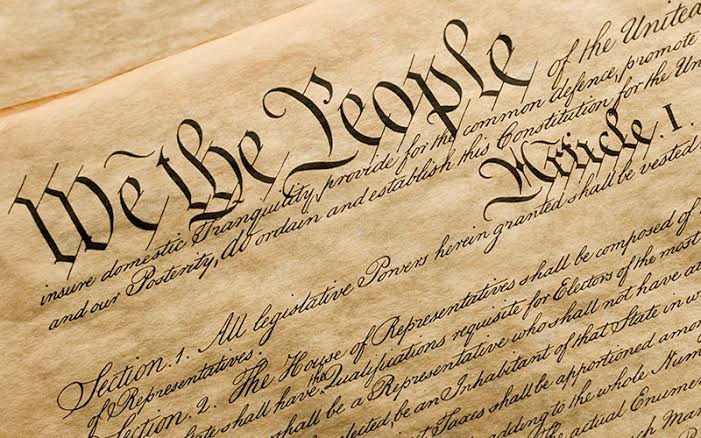 We the People of the United
insure domestic Tranquility, provide for the common defence, promote
and our Posterity, do ordain and establish this Constitution for the Un
Article. I.
Section. 1. All legislative Powers herein granted shall be vested
of Representatives.
Section. 2. The House of Representatives shall be composed of
State shall have the Qualifications requisite for Electors of the most
shall be a Representative who shall not have at
elected, be an Inhabitant of that State in w
Taxes shall be apportioned amon
adding to the whole Num
The actual Enumer
each Man